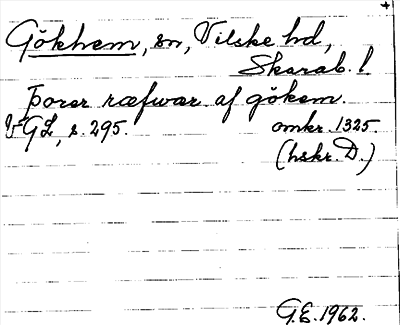 Gökhem, sn, Vilske hd,
Skarab. l
Þorer ræfwær af gökem.
VGL, s. 295. omkr. 1325
(hskr. D.)
G.E. 1962.